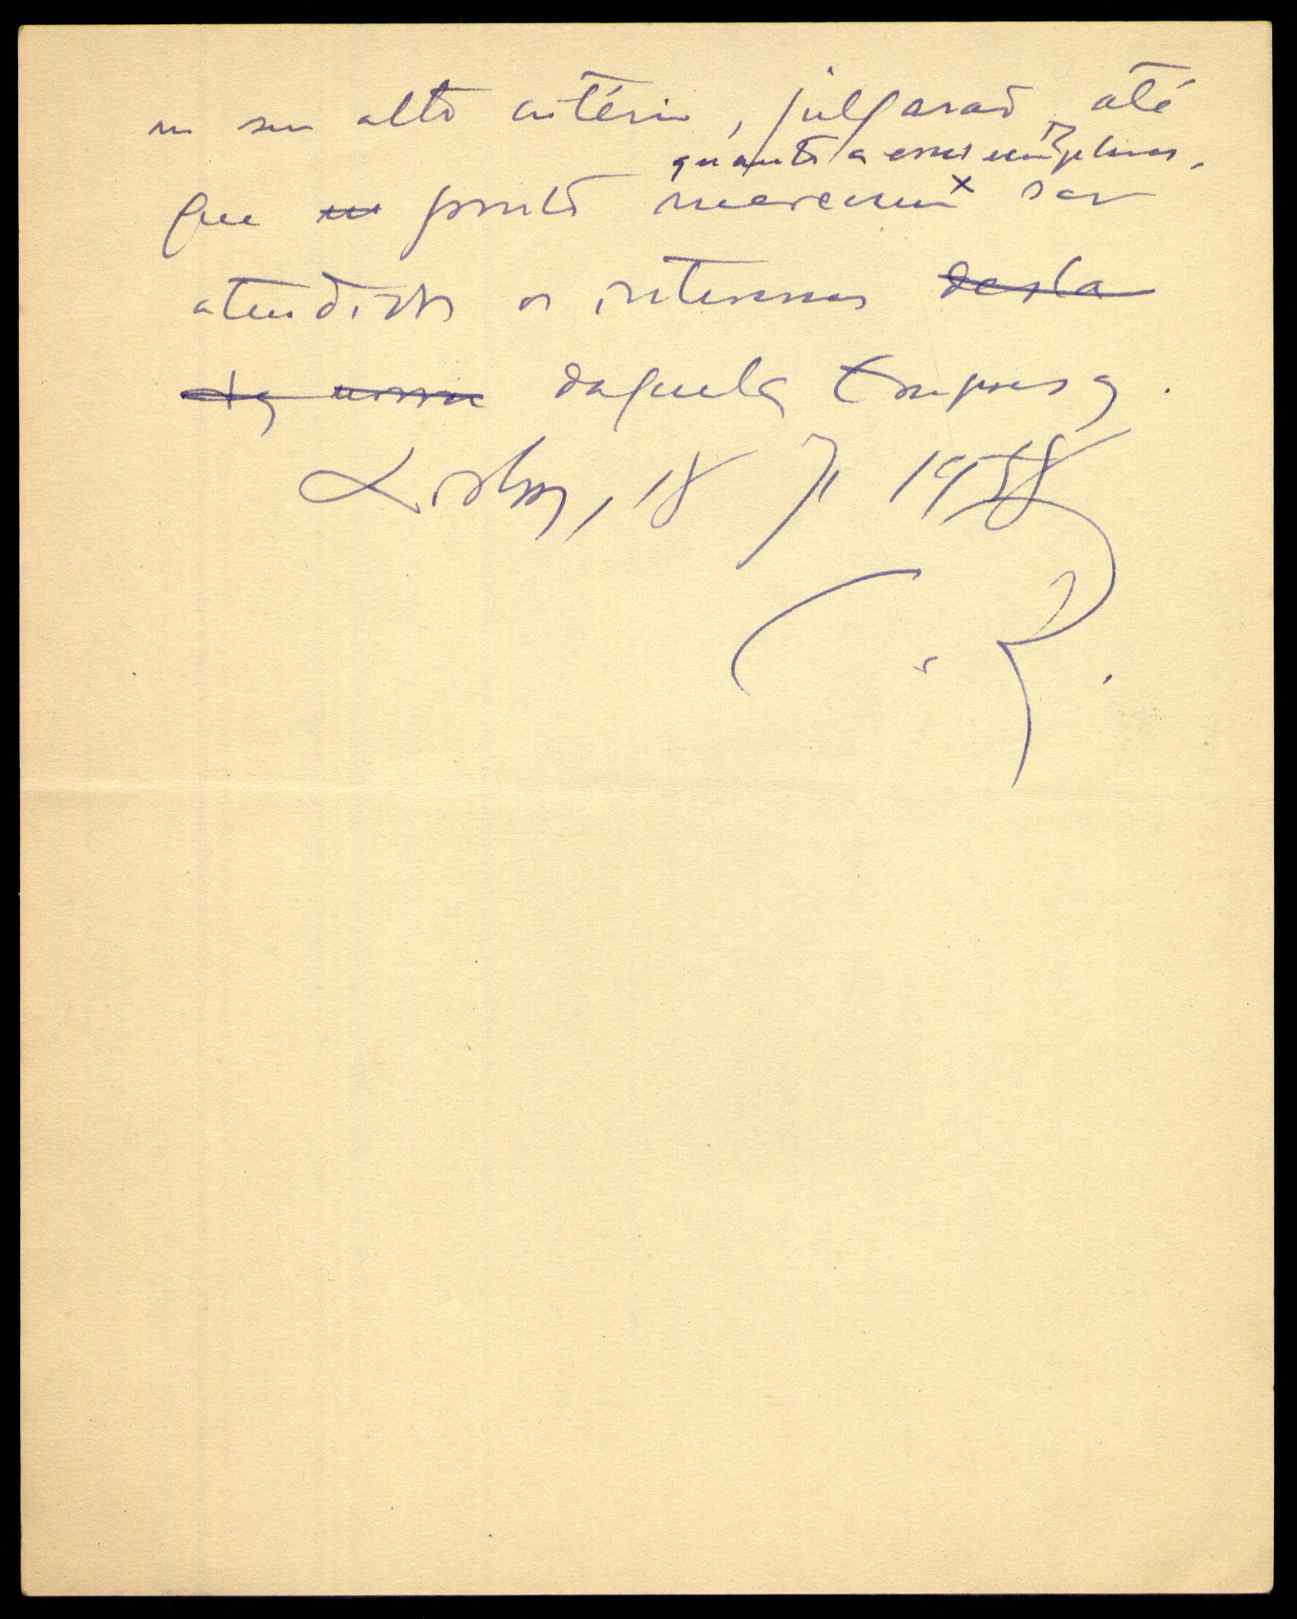 no seu alto critério, julgarão até
quanto a esses exemplares,
que ponto merecem x ser
atendidos os interesses desta
da nossa daquela Empresa.
Lisboa, 18 7 1958
C. R.